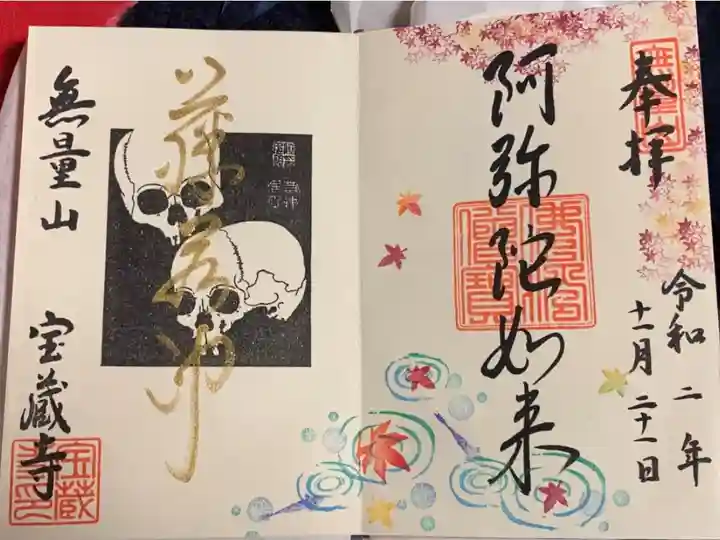 奉拝
阿弥陀如来
令和二年
十一月二十一日
佛法僧寳
無量山
宝蔵寺